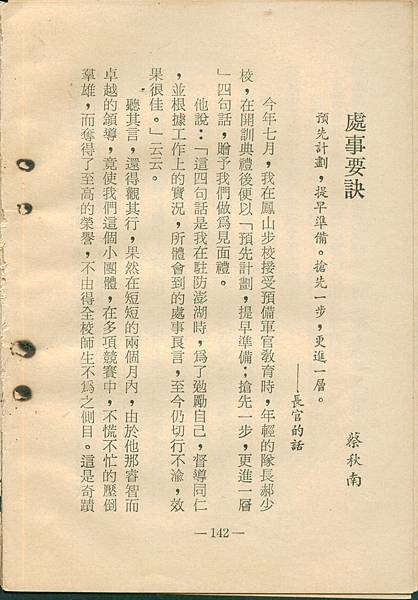 處事要訣
蔡秋南
預先計劃,提早準備。搶先一步,更進一層。
——長官的話
今年七月,我在鳳山步校接受預備軍官教育時,年輕的隊長郝少
校,在開訓典禮後便以「預先計劃,提早準備;搶先一步,更進一層
」四句話,贈予我們做爲見面禮。
他說:「這四句話是我在駐防澎湖時,爲了勉勵自己,督導同仁
,並根據工作上的實況,所體會到的處事良言,至今仍切行不渝,效
果很佳。」云云。
聽其言,還得觀其行,果然在短短的兩個月內,由於他那睿智而
卓越的領導,竟使我們這個小團體,在多項競賽中,不慌不忙的壓倒
羣雄,而奪得了至高的榮譽,不由得全校師生不爲之側目。這是奇蹟
—142—